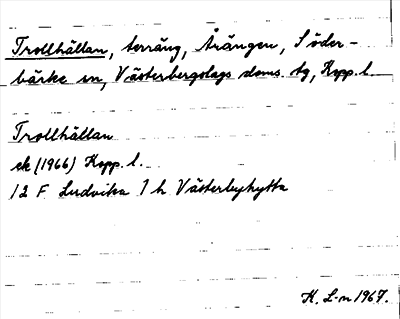 Trollhällan, terräng, Årängen, Söder-
bärke sn, Västerbergslags doms. tg, Kopp. l.
Trollhällan
ek (1966) Kopp. l.
12 F Ludvika 7 h Västerbyhytta
H. L-n 1967.